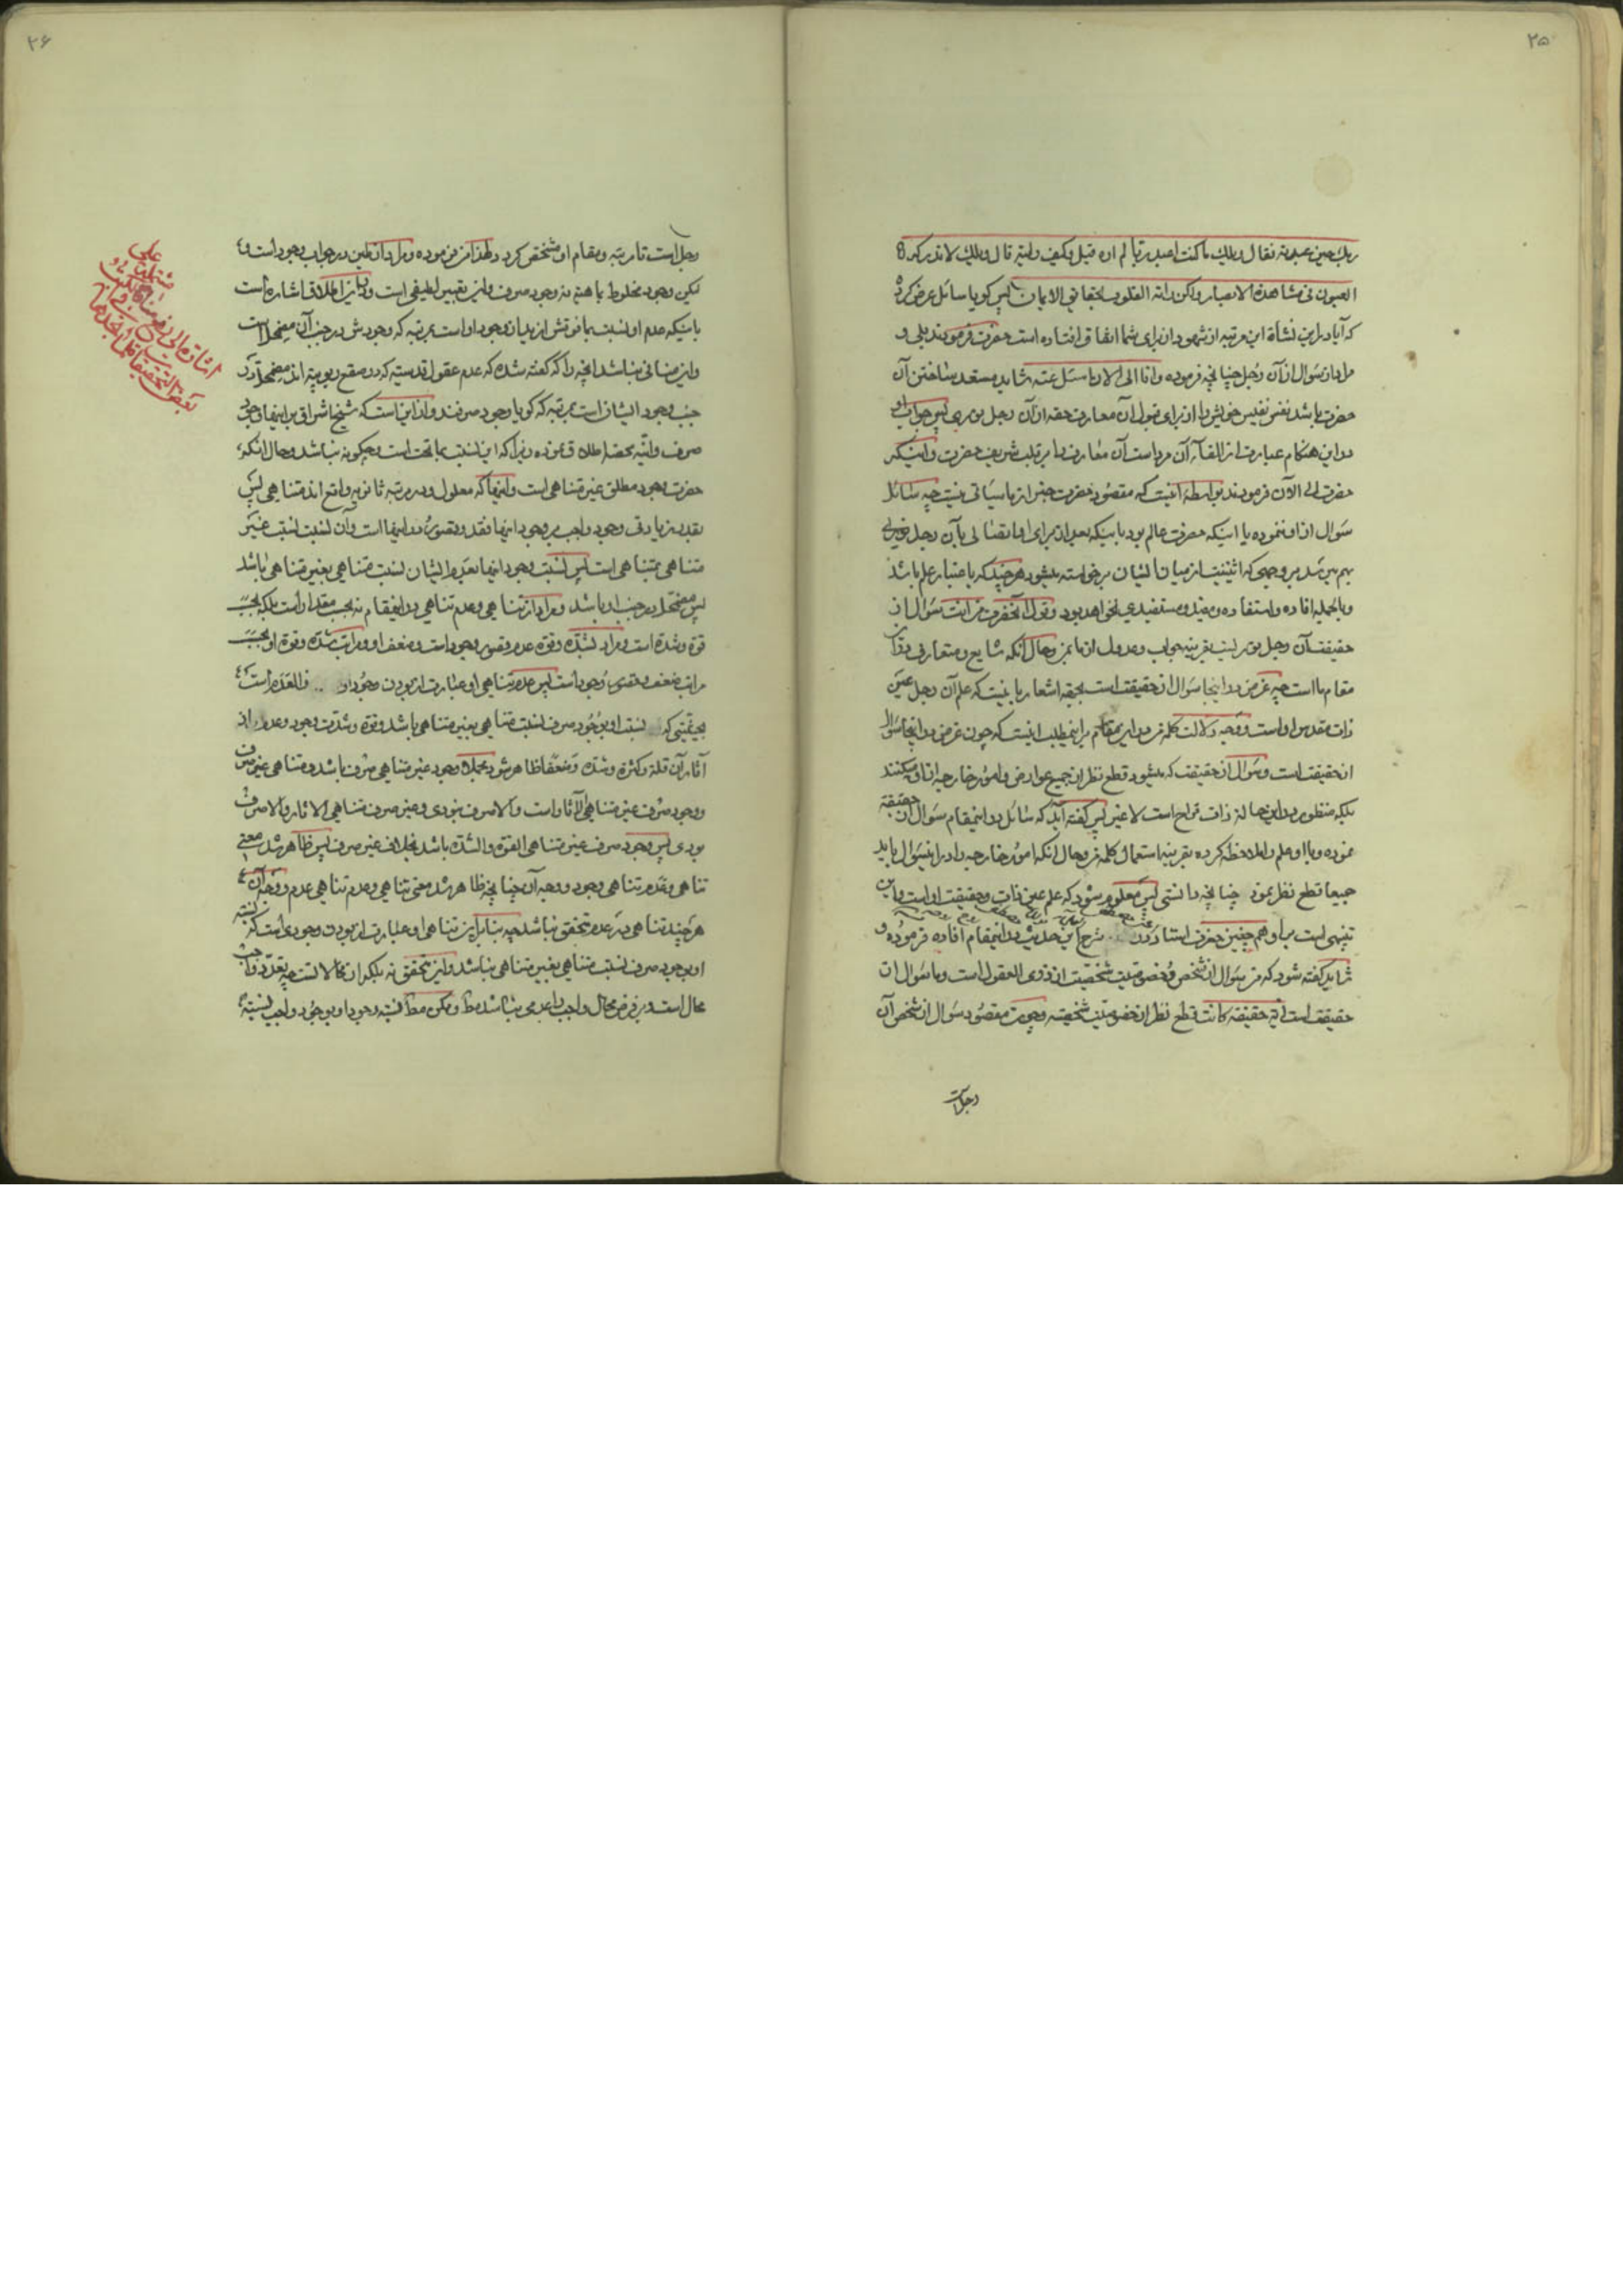 ۲۵
ربك حين عبدته فقال ويلك ما كنت اعبد ربا لم اره قيل وكيف رايته قال ويلك لا تدركه
العيون في مشاهدة الابصار ولكن راته القلوب بحقايق الايمان پس كويا سائل عرض كرده
كه آيا در اين نشاة اين مرتبه از شهود از براى شما اتفاق افتاده است حضرت فرمودند بلى و
مراد از سؤال از آن رجل چنانچه فرموده وانا الى الآن اسئل عنه شايد مستعد ساختن آن
حضرت باشد نفس نفيس خويش را از براى قبول آن معارف حقه از آن رجل نورى پس جواب او
در اين هنكام عبارت از القآء آن مرد است آن معارف را بر قلب شريف حضرت و اينكه
حضرت الى الآن فرمودند بواسطهٔ آنيست كه مقصود حضرت جز از ما سياتى نيست چه سائل
سؤال از او ننموده يا اينكه حضرت عالم بود باينكه بعد از براى او اتصالى بآن رجل نورى
بهم ميرسد بر وجهى كه اثنينيت از ميان ايشان برخواسته ميشود هر چند كه باعتبار علم باشد
وبالجمله افاده واستفاده ومفيد ومستفيدى نخواهد بود وقول آنحضرت من انت سؤال از
حقيقت آن رجل نوريست بقرينه جواب وعدول از ما بمن وحال آنكه شايع ومتعارف در آن
مقام ما است چه غرض در اينجا سؤال از حقيقت است بجهة اشعار باينست كه علم آن رجل عين
ذات مقدس او است ووجه دلالت كلمه من در اين مقام بر اينمطلب اينست كه چون غرض در اينجا سؤال
از حقيقت است وسؤال از حقيقت كه ميشود قطع نظر از جميع عوارض وامور خارجه از او ميكنند
بلكه منظور در اين حالة ذات قراح است لا غير پس كفته آيد كه سائل در اينمقام سؤال از حقيقة
نموده وبا او علم را ملاحظه كرده بقرينه استعمال كلمه من وحال آنكه امور خارجه را در اين سؤال بايد
جميعا قطع نظر نمود چنانچه دانستى پس معلوم ميشود كه علم عين ذات وحقيقت او است واين
تنبيهى است بر او همچنين حضرت استاد شرح اين حديث در اينمقام افاده فرموده و
شايد كفته شود كه من سؤال از شخص وخصوصيت شخصيت از ذوى العقول است وما سؤال از
حقيقت است اية حقيقة كانت قطع نظر از خصوصيت شخصيه وچون مقصود سؤال از شخص آن
رجل است
۲۶
رجل است تا مرتبه ومقام او مشخص كردد ولهذا من فرموده ومراد از طين در جواب وجود است
ليكن وجود مخلوط با هيت نه وجود صرف واين تعبير لطيفى است ودر اين اطلاق اشاره است
باينكه عدم او نسبت بما فوقش از يد از وجود او است بمرتبه كه وجودش در جنب آن مضمحل است
واين منافى نباشد آنچه را كه كفته شده كه عدم عقول قدسيته كه در صقع ربوبيته اند مضمحل در
جنب وجود ايشان است بمرتبه كه كويا وجود صرفند واز اين است كه شيخ اشراق بر اينها وجود
صرف وانيّه محضه اطلاق نموده زيرا كه اين نسبت بما تحت است وچكونه نباشد وحال آنكه
حضرت وجود مطلق غير متناهى است واينها كه معلول ودر مرتبه ثانويه واقع اند متناهى پس
بقدر زيادتى وجود واجب بر وجود اينها فقد وقصور در اينها است وآن نسبت نسبت غير
متناهى بمتناهى است پس نسبت وجود اينها بعدم ايشان نسبت متناهى بغير متناهى باشد
پس مضمحل در جنب او باشد ومراد از تناهى وعدم تناهى در اينمقام نه بحسب مقدار است بلكه بحسب
قوة وشدة است ومراد بشدة وقوة عدم قصور وجود است وضعف او ومراتب شدة وقوة او بحسب
مراتب ضعف وقصور وجود است پس عدم تناهى او عبارت از بودن وجود او فالقدم است
بحيثيتى كه نسبت او بوجود صرف نسبت متناهى بغير متناهى باشد وقوة وشدت وجود وعدم از
آثار آن قلة وكثرة وشدة وضعفا ظاهر شود بالجمله وجود غير متناهى صرف باشد ومتناهى غير صرف
ووجود صرف غير متناهى الآثار است والا صرف نبودى وغير صرف متناهى الاثار والا صرف
بودى پس وجود صرف غير متناهى القوة والشدة باشد بخلاف غير صرف پس ظاهر شد معنى
تناهى وعدم تناهى وجود ووجه آن چنانچه ظاهر شد معنى تناهى وعدم تناهى عدم ووجه آن
هر چند تناهى در عدم تحقق نباشد چه بنابراين تناهى او عبارت از بودن وجودى است كه نسبته
او بوجود صرف نسبت متناهى بغير متناهى نباشد واين تحقق نه بلكه از محالاتست چه تعدد واجب
محال است وبر فرض محال واجب را عدمى نباشد مط وممكن مط نسبة وجود او بوجود واجب نسبته